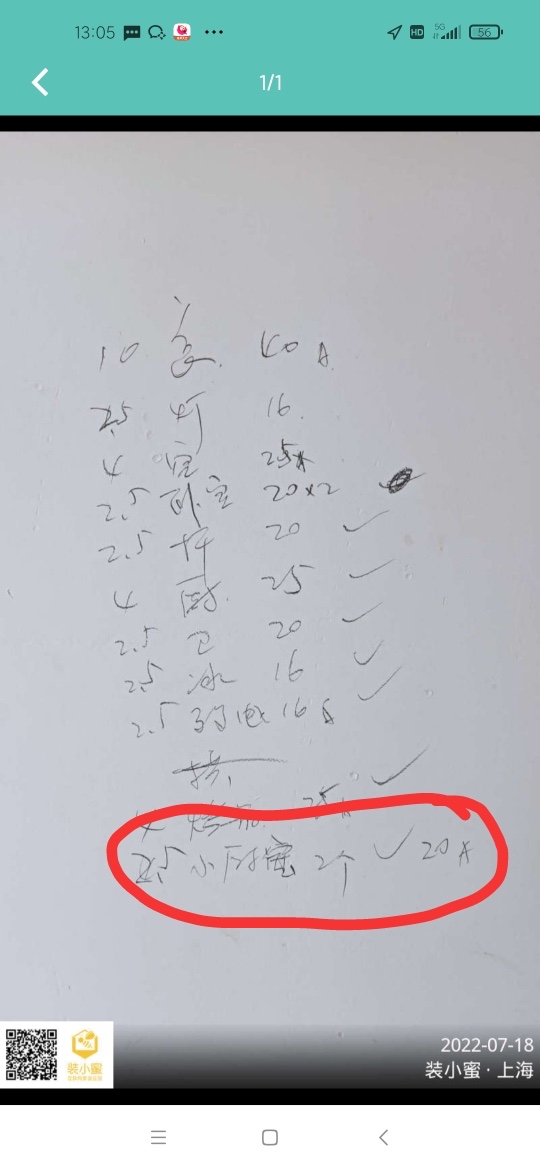 13:05 HD 5G 56
1/1
10 总 40A
2.5 灯 16
4 空 25A
2.5 卧室 20×2
2.5 厅 20
4 厨 25
2.5 卫 20
2.5 冰 16
2.5 弱电 16A
4 25A
2.5 小厨宝 2个 20A
2022-07-18
装小蜜 装小蜜·上海